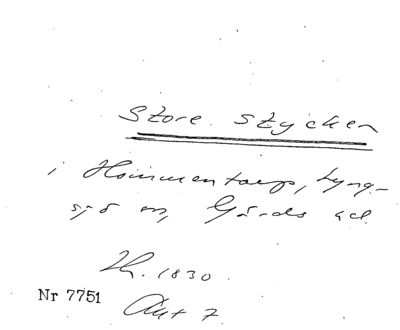 Store stycken
i Hommentorp, Lyng-
sjö sn, Gärds hd.
Th. 1830.
Nr 7751
Akt 7.